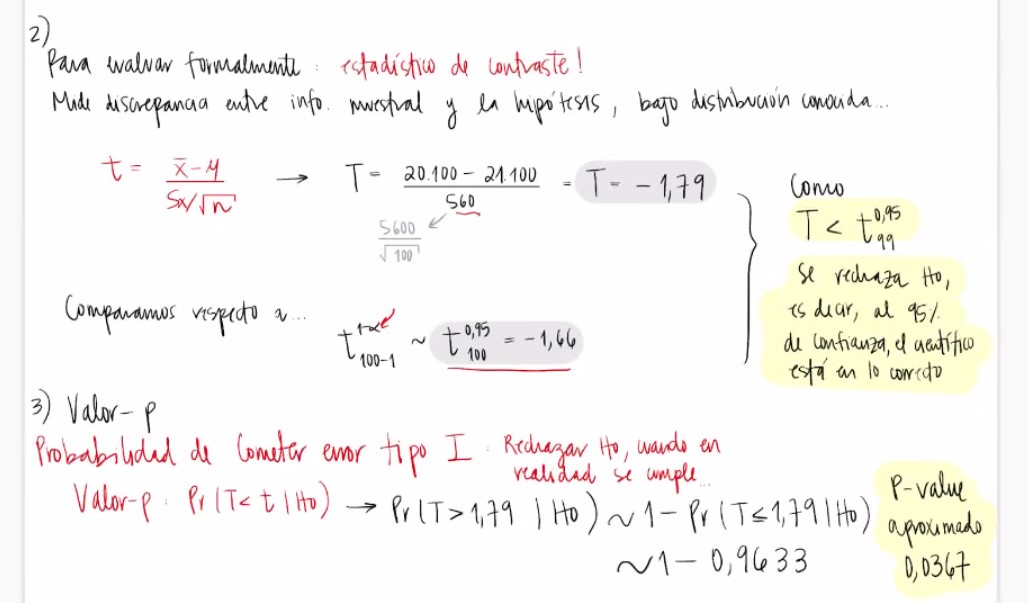 2)
Para evaluar formalmente : estadístico de contraste!
Mide discrepancia entre info. muestral y la hipótesis, bajo distribución conocida...
t = x̄ - μ / Sx/√n → T = 20.100 - 21.100 / 560 = T = -1,79
5600 / √100
Como
T < t 0,95 99
se rechaza Ho,
es decir, al 95%
de confianza, el científico
está en lo correcto
Comparamos respecto a...
t 1-α 100-1 ~ t 0,95 100 = -1,66
3) Valor-p
Probabilidad de cometer error tipo I : Rechazar Ho, cuando en
realidad se cumple...
Valor-p : Pr(T< t | Ho) → Pr(T > 1,79 | Ho) ~ 1 - Pr(T ≤ 1,79 | Ho)
~ 1 - 0,9633
P-value
aproximado
0,0367